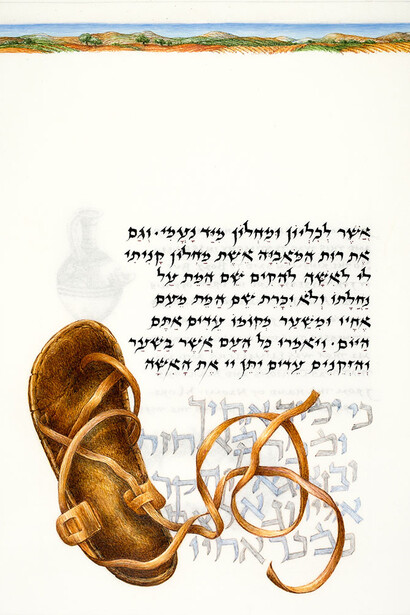 אֲשֶׁר לְכִלְיוֹן וּמַחְלוֹן מִיַּד נָעֳמִי · וְגַם
אֶת רוּת הַמֹּאֲבִיָּה אֵשֶׁת מַחְלוֹן קָנִיתִי
לִי לְאִשָּׁה לְהָקִים שֵׁם הַמֵּת עַל
נַחֲלָתוֹ וְלֹא יִכָּרֵת שֵׁם הַמֵּת מֵעִם
אֶחָיו וּמִשַּׁעַר מְקוֹמוֹ עֵדִים אַתֶּם
הַיּוֹם · וַיֹּאמְרוּ כָּל הָעָם אֲשֶׁר בַּשַּׁעַר
וְהַזְּקֵנִים עֵדִים יִתֵּן יְיָ אֶת הָאִשָּׁה
כי אחיך
אחיו